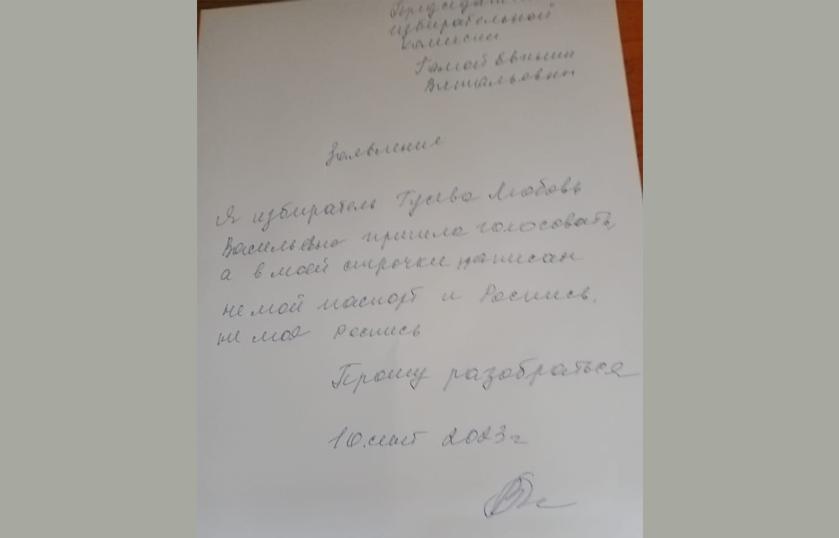 Председателю
избирательной
комисси
Витальевны
Заявление
Я избиратель Гусева Любовь
Васильевна пришла голосовать,
а в моей строчки написан
не мой паспорт и Роспись.
не моя роспись
Прошу разобраться
10.сент 2023г